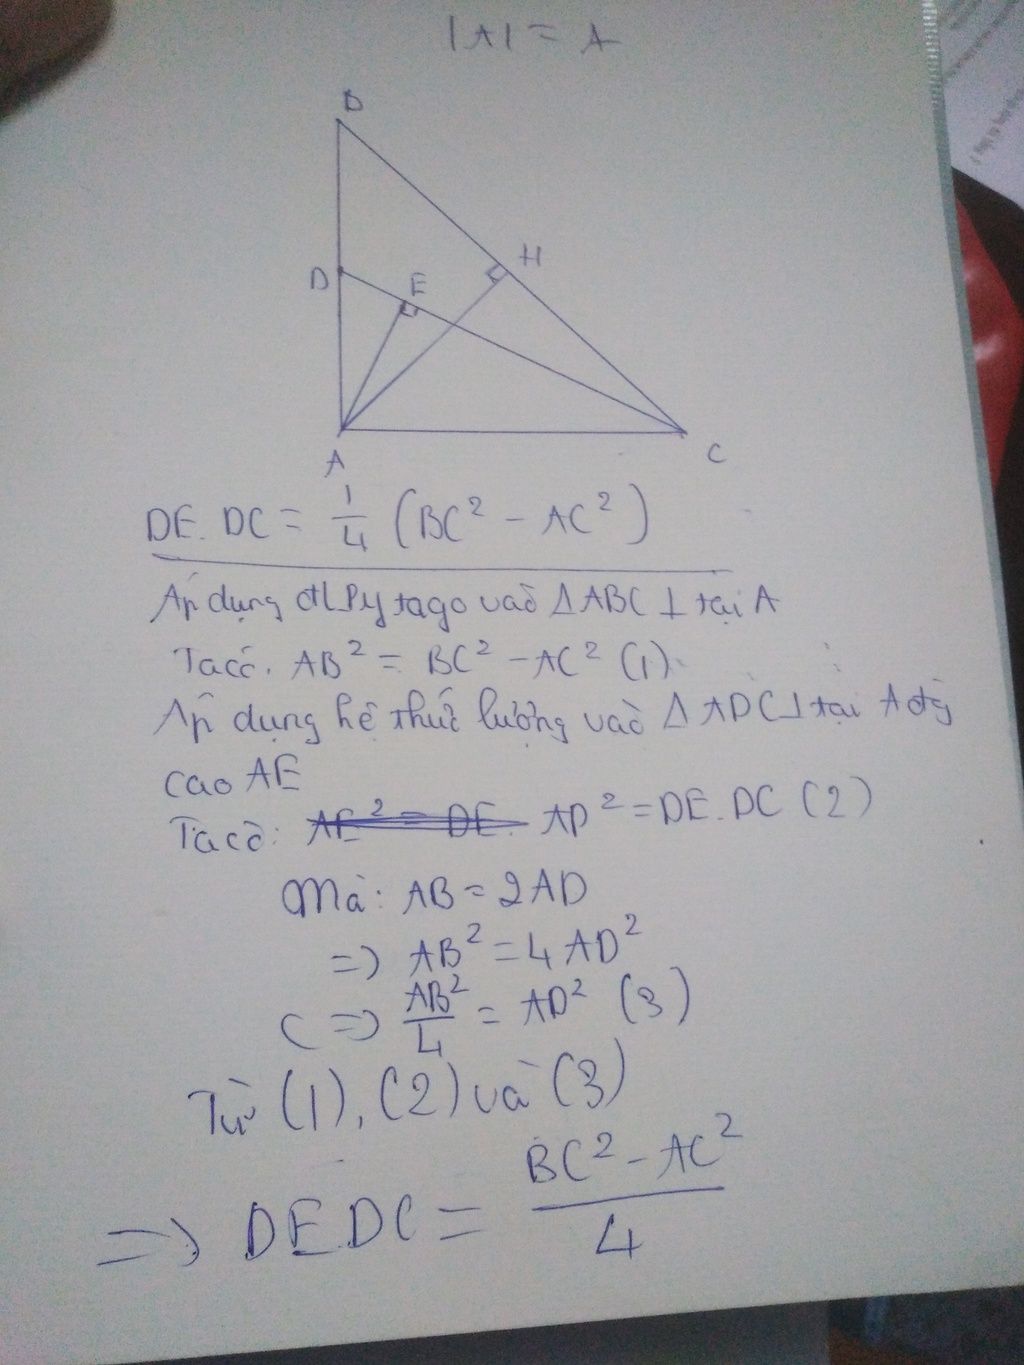 |A| = A
B
H
D
E
A
C
DE. DC = 1/4 (BC² - AC²)
Áp dụng đtL Pytago vào ΔABC ⊥ tại A
Ta có. AB² = BC² - AC² (1)
Áp dụng hệ thức lượng vào Δ ADC ⊥ tại A đg
cao AE
Ta có: AE² = DE. AD² = DE. DC (2)
Mà: AB = 2AD
=> AB² = 4 AD²
=> AB²/4 = AD² (3)
Từ (1), (2) và (3)
=> DE.DC = BC² - AC²/4